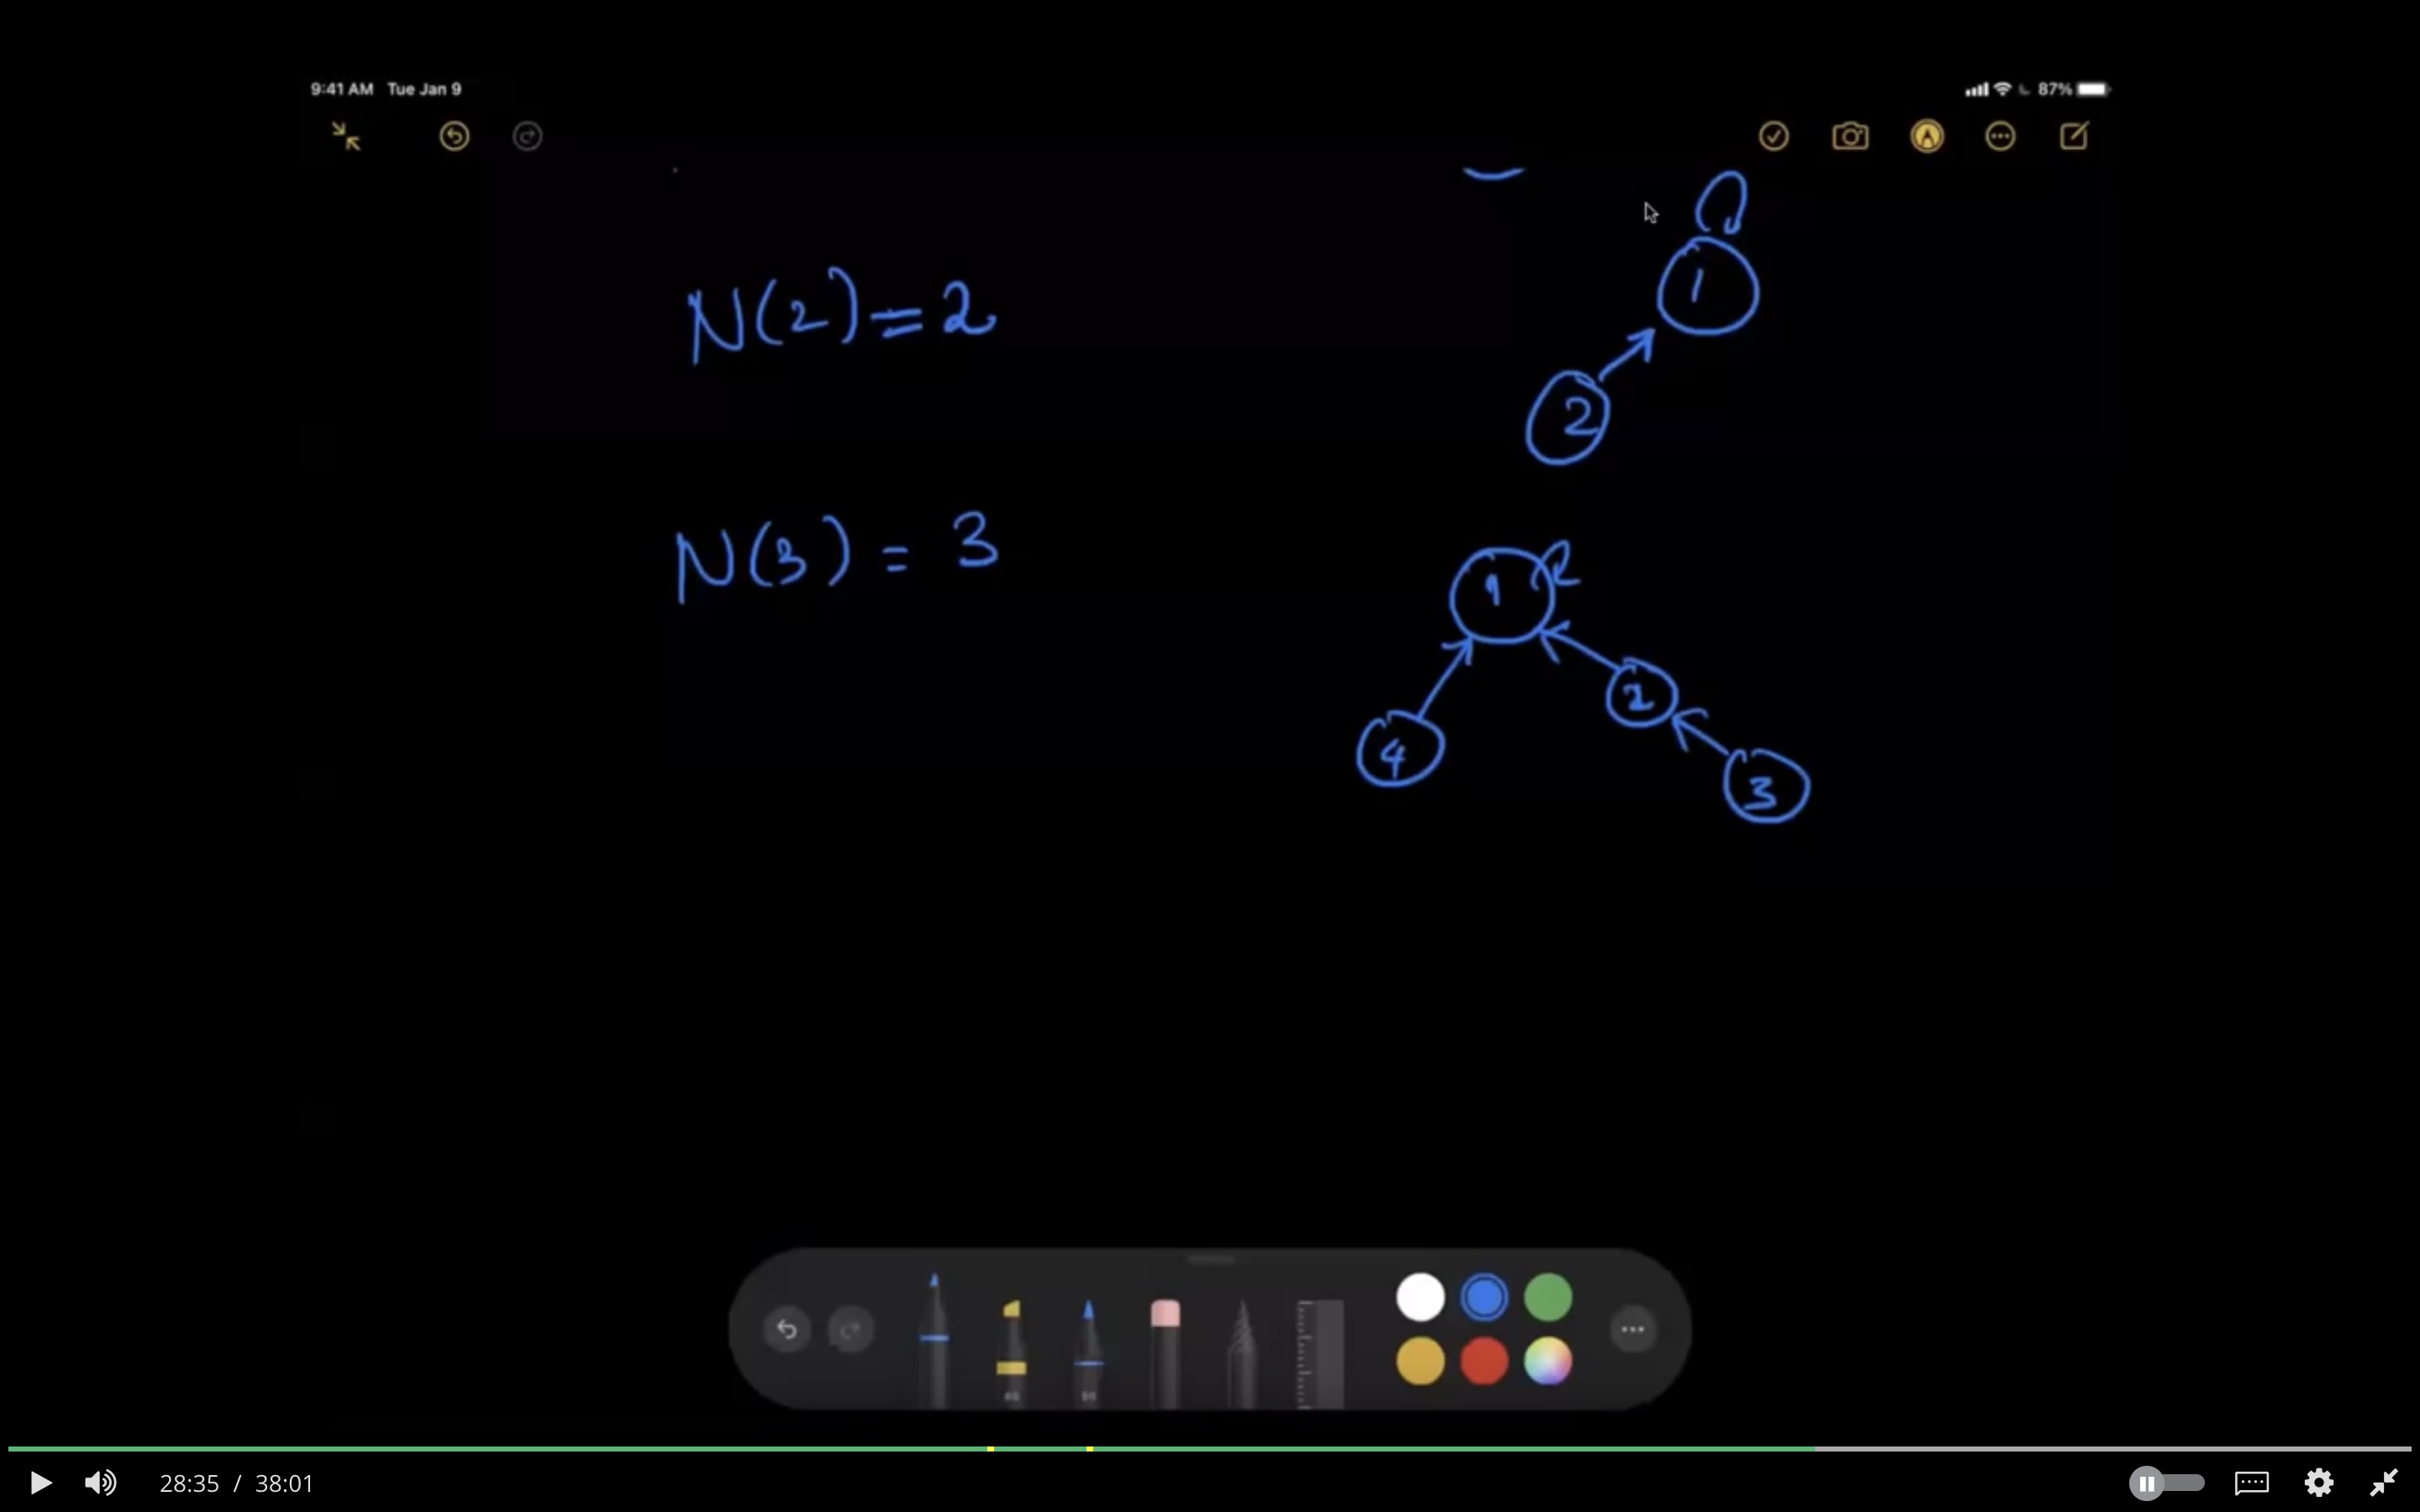 9:41 AM Tue Jan 9
87%
1
N(2)=2
2
N(3) = 3
1
2
4
3
80
50
28:35 / 38:01